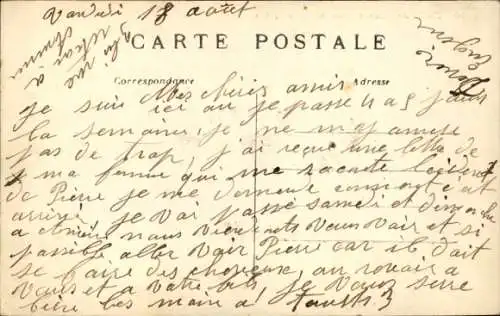 Vandredi 18 août
CARTE POSTALE
Correspondance
Adresse
Mes chers amis
je suis ici ou je passe 4 a 5 jours
la semaine, je ne m'y amuse
pas de trop, j'ai reçue une lettre de
ma femme qui me raconte l'accident
de Pierre je me demande comment c'est
arrivé je vai passé samedi et dimanche
a nous viendrons vous voir et si
possible aller voir Pierre car il doit
se faire des cheveux, au revoir a
vous et a votre fils, je vous serre
bien les mains a tous